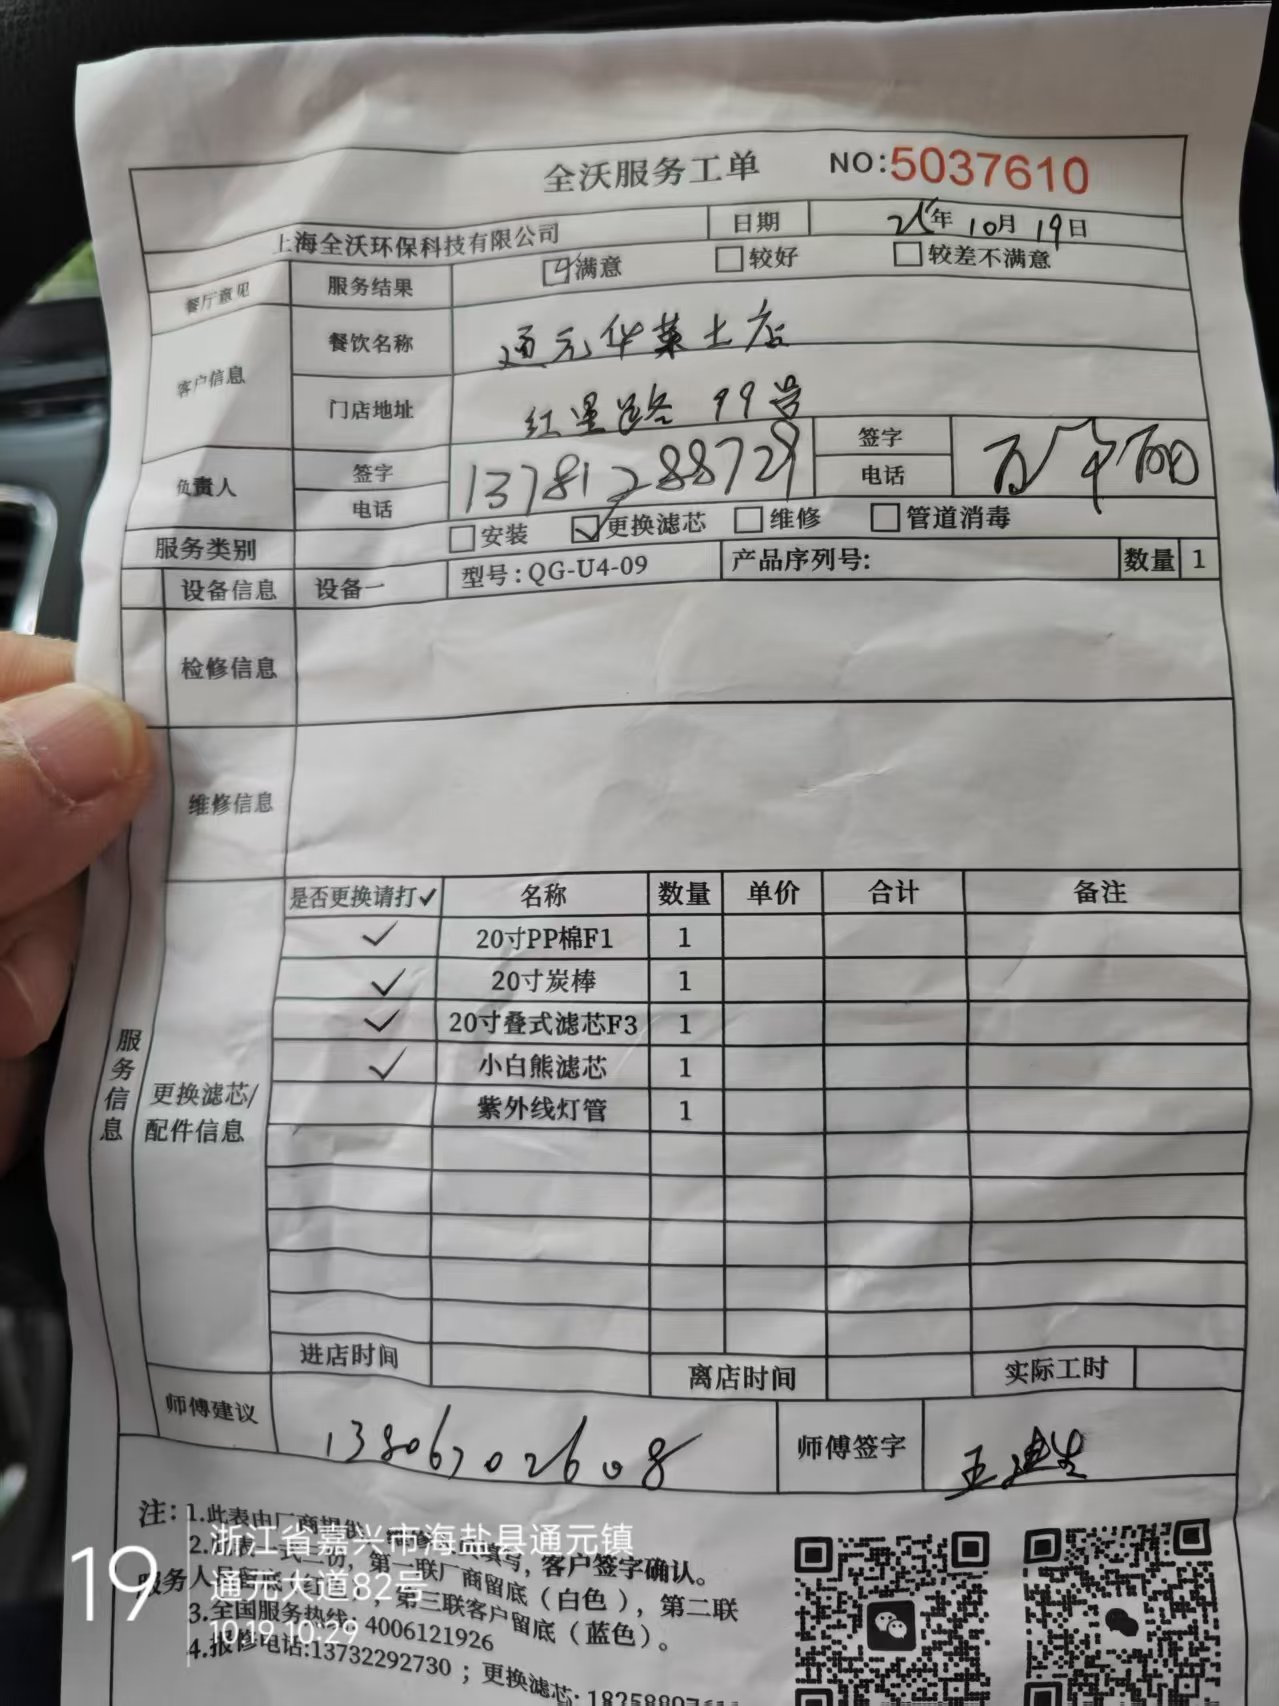 全沃服务工单 NO:5037610
上海全沃环保科技有限公司 日期 25年10月19日
餐厅意见 服务结果 满意 较好 较差不满意
客户信息 餐饮名称 通元华莱士店
门店地址 红星路99号
负责人 签字 电话 13781288729 签字 电话
服务类别 安装 ✓更换滤芯 维修 管道消毒
设备信息 设备一 型号:QG-U4-09 产品序列号: 数量 1
检修信息
维修信息
服务信息
更换滤芯/配件信息
是否更换请打✓ 名称 数量 单价 合计 备注
✓ 20寸PP棉F1 1
✓ 20寸炭棒 1
✓ 20寸叠式滤芯F3 1
✓ 小白熊滤芯 1
紫外线灯管 1
进店时间 离店时间 实际工时
师傅建议 13806702608 师傅签字
注:1.此表由厂商提供,
填写,客户签字确认。
2.
第一联厂商留底(白色),第二联
服务人
第三联客户留底(蓝色)。
3.全国服务热线:4006121926
4.报修电话:13732292730;更换滤芯:
19
浙江省嘉兴市海盐县通元镇
通元大道82号
10.19 10:29